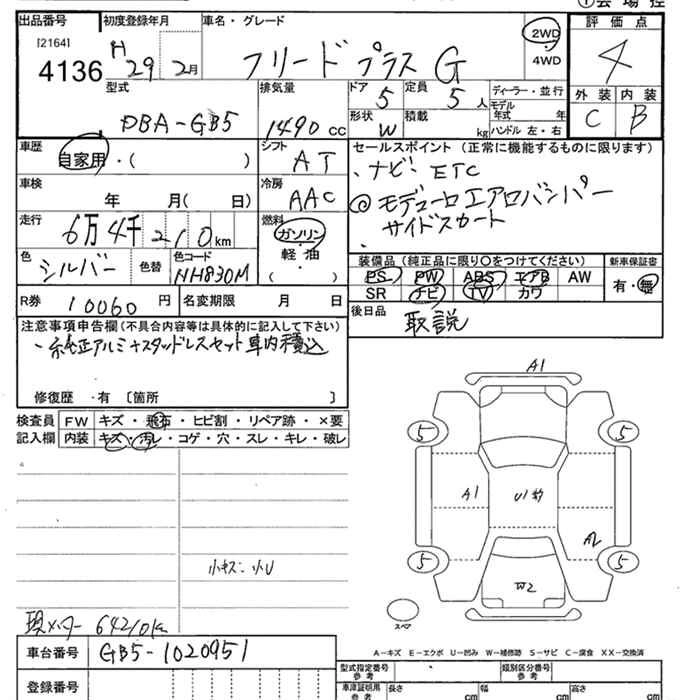 出品番号 初度登録年月 車名・グレード 評価点
[2164] H 29 2月 フリードプラス G 2WD・4WD 4
4136
型式 排気量 ドア 5 定員 5人 ディーラー・並行 外装 内装
DBA-GB5 1490cc 形状 W 積載 kg モデル年式 年 C B
ハンドル 左・右
車歴 自家用・( ) シフト AT セールスポイント (正常に機能するものに限ります)
車検 年 月( 日) 冷房 AAC ・ナビ・ETC
走行 6万4千210km 燃料 ガソリン・軽油・( ) ◎モデューロエアロバンパー
サイドスカート
色 シルバー 色替 色コード NH830M
装備品 (純正品に限り○をつけてください) 新車保証書
PS PW ABS エアB AW 有・無
SR ナビ TV カワ
R券 10060円 名変期限 月 日 後日品 取説
注意事項申告欄(不具合内容等は具体的に記入して下さい)
・純正アルミ+スタッドレスセット車内積込
修復歴・有 〔箇所 〕
検査員 FW キズ・飛石・ヒビ割・リペア跡・×要
記入欄 内装 キズ・汚レ・コゲ・穴・スレ・キレ・破レ
A1
5 5
A1 U1 A2
5 5
W2
小キズ・小U
スペア
現メーター 64210km
A-キズ E-エクボ U-凹み W-補修跡 S-サビ C-腐食 XX-交換済
車台番号 GB5-1020951
型式指定番号 参考 類別区分番号 参考
登録番号 車庫証明用 参考 長さ cm 幅 cm 高さ cm